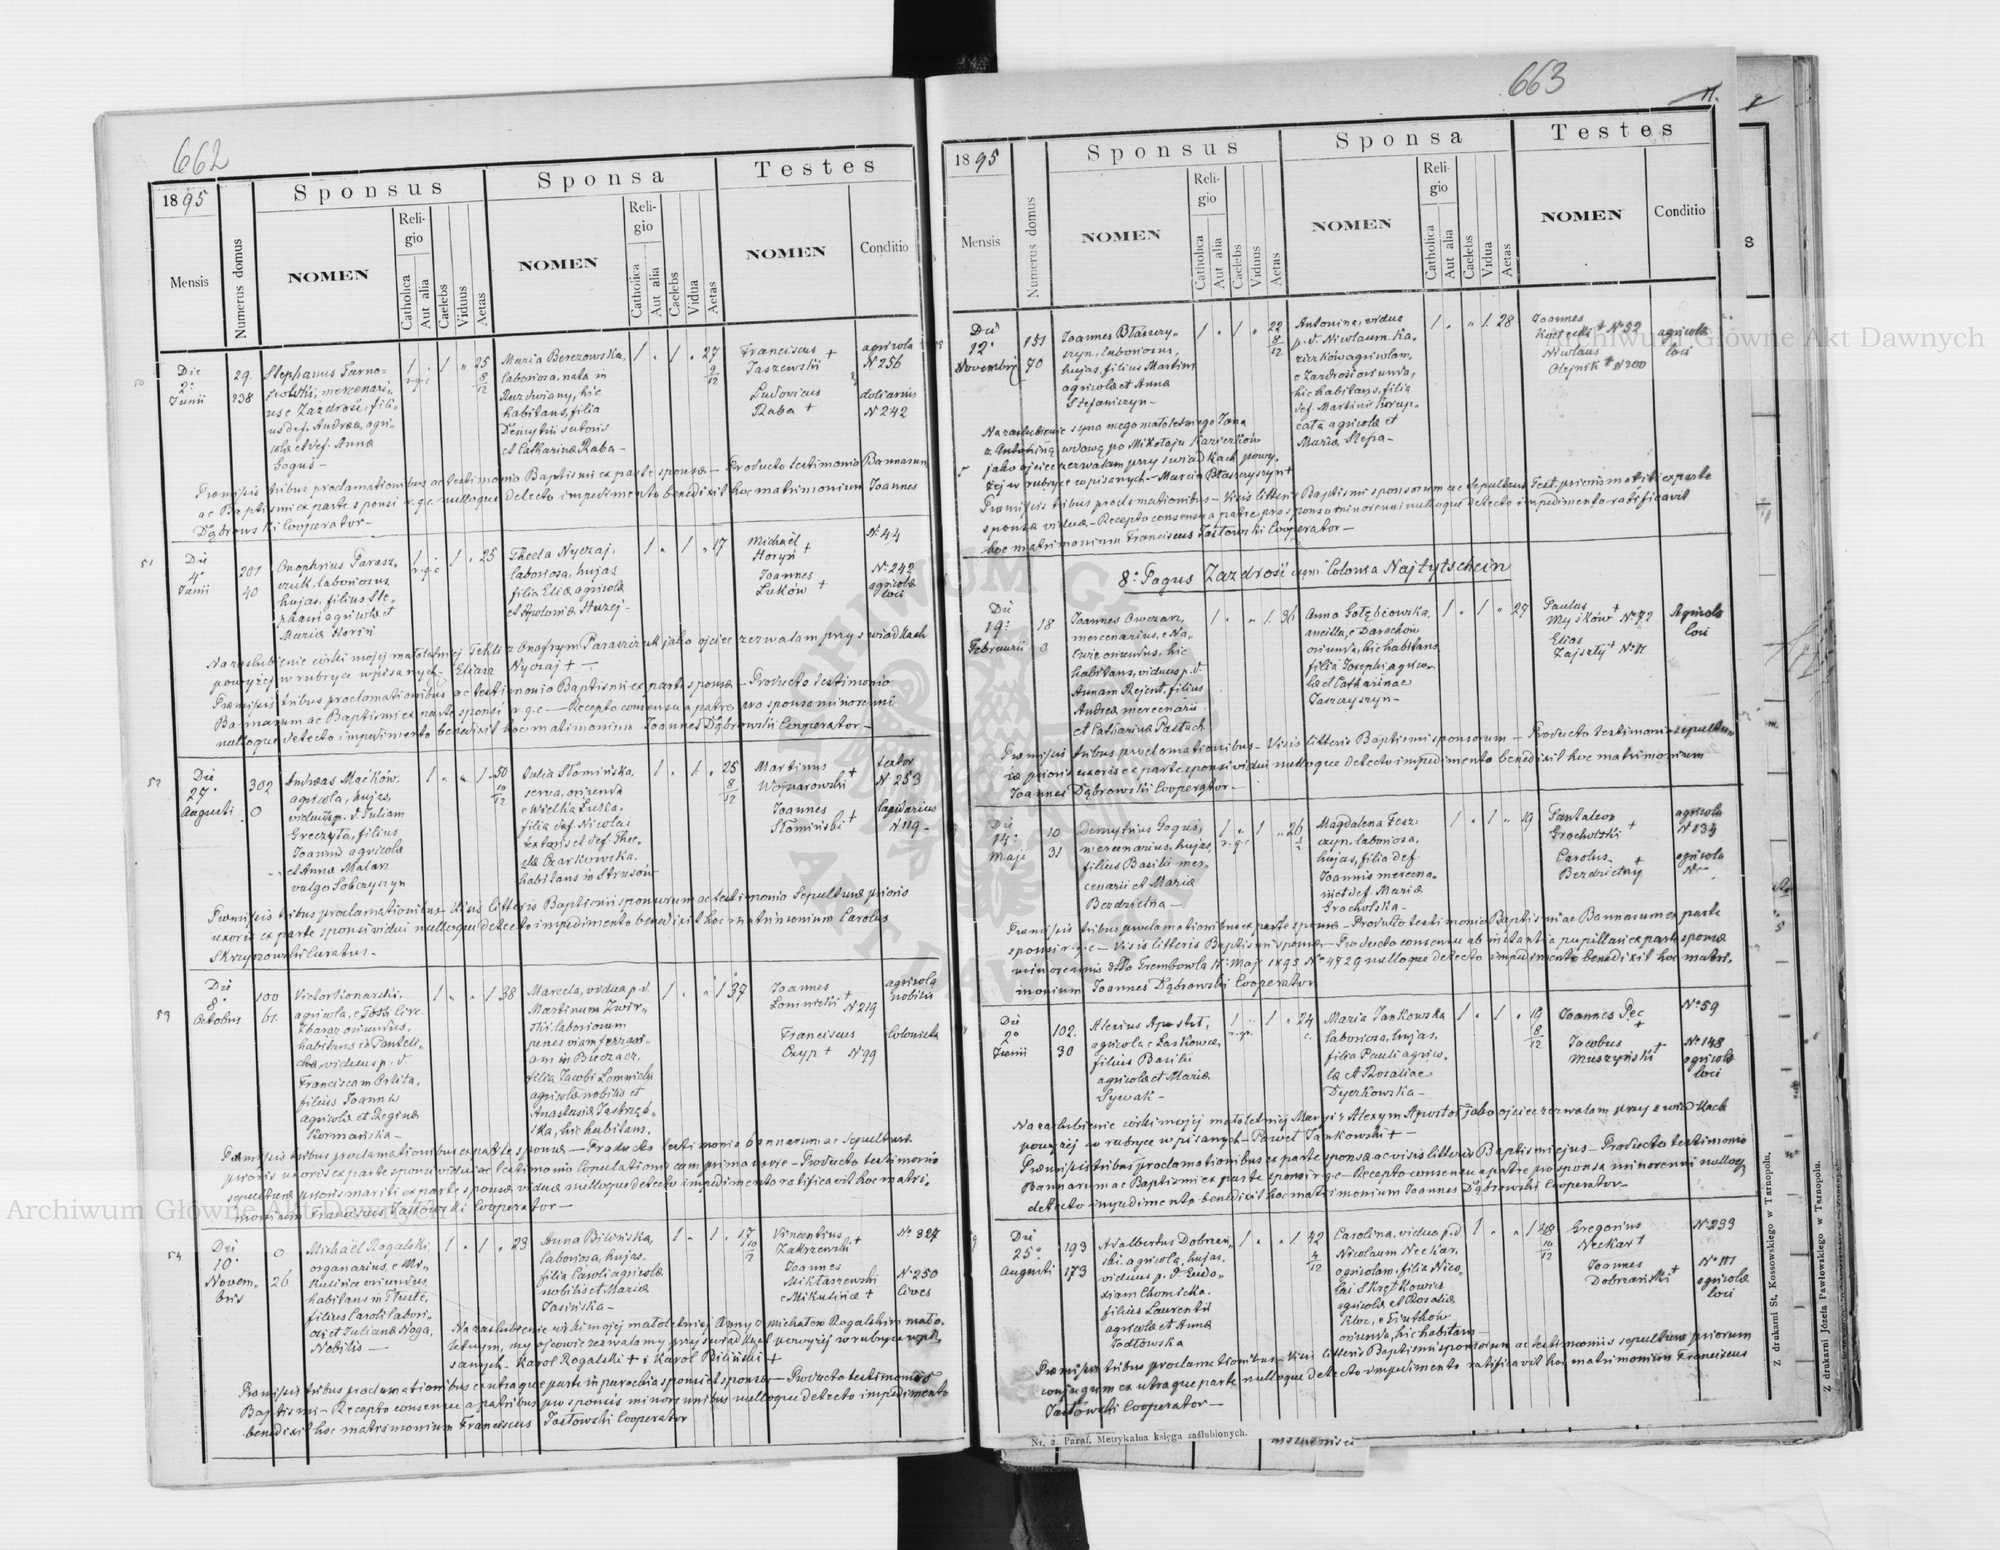 662
1895
Sponsus
Sponsa
Testes
Mensis
Numerus domus
NOMEN
Religio
Catholica
Aut alia
Caelebs
Viduus
Aetas
NOMEN
Religio
Catholica
Aut alia
Caelebs
Vidua
Aetas
NOMEN
Conditio
Die
2ª
Junii
29.
238
Stephanus Tarno-
us e Zazdrość, fili-
us def. Andreæ agri-
colæ et def. Anna
Goguś -
25
8/12
Maria Berezowska,
laboriosa, nata in
habitans, filia
Demytrii sutoris
et Catharinæ Raba -
27
9/12
Franciscus +
Jaszewski
Ludovicus
Raba +
agricola
N 256
doliarius
N 242
Præmissis tribus proclamationibus ac testimonio Baptismi ex parte sponsæ - Producto testimonio Bannorum
ac Baptismi ex parte sponsi r.g.c. nulloque detecto impedimento benedixit hoc matrimonium Joannes
Dąbrowski Cooperator -
51
Die
4ª
Junii
201
40
Onophrius Parasz-
czuk, laboriosus,
hujas, filius Ste-
phani agricolæ et
Mariæ Horin
25
Thecla Nyczaj,
laboriosa, hujas
filia Eliæ agricolæ
et Apoloniæ Huzej -
17
Michaël
Horyń +
Joannes
Luków +
N. 44
N. 242
agricolæ
loci
Na zaślubienie córki mojej małoletniej Tekli z Onufrym Paraszczuk jako ojciec zezwalam przy świadkach
powyżej w rubryce wpisanych - Eliasz Nyczaj + -
Præmissis tribus proclamationibus ac testimonio Baptismi ex parte sponsæ - Producto testimonio
Bannorum ac Baptismi ex parte sponsi r.g.c - Recepto consensu a patre pro sponsa minorenni
nulloque detecto impedimento benedixit hoc matrimonium Joannes Dąbrowski Cooperator -
52
Die
27ª
Augusti
302
0
Andreas Maćków,
agricola, hujas,
viduus p. d. Juliam
Greczyło, filius
Joannis agricolæ
et Annæ Matan
vulgo Sobczyszyn
50
10/12
Julia Słomińska,
serva, oriunda
e Wielka Łuka,
filia def. Nicolai
textoris et def. The-
clæ Czarkowska,
habitans in Strusów
25
8/12
Martinus
Wojnarowski +
Joannes
Słomiński +
textor
N 253
lapidarius
N 119 -
Præmissis tribus proclamationibus - Visis litteris Baptismi sponsorum ac testimonio Sepulturæ prioris
uxoris ex parte sponsi vidui nulloque detecto impedimento benedixit hoc matrimonium Carolus
Skrzyszowski Curatus -
53
Die
8ª
Octobris
100
61.
agricola,
Zbaraż oriundus,
habitans in Panteli-
cha, viduus p. d.
Franciscam Orlita,
filius Joannis
agricolæ et Reginæ
Kormańska -
38
Marcela, vidua p. d.
Martinum Zwir-
ski laboriosum
penes viam ferrari-
am in Buczacz,
filia Jacobi Łomnicki
agricolæ nobilis et
Anastasiæ Jastrzęb-
ska, hic habitans,
37
Joannes
Łomnicki +
N 219
Franciscus
Czyp + N 99
agricola
nobilis
Colonista
Præmissis tribus proclamationibus ex parte sponsæ - Producto testimonio bannorum ac sepulturæ
prioris uxoris ex parte sponsi vidui ac testimonio Copulationis cum prima uxore - Producto testimonio
sepulturæ prioris mariti ex parte sponsæ viduæ nulloque detecto impedimento ratificavit hoc matri-
monium Franciscus Jastowski Cooperator -
54
Die
10ª
Novem-
bris
0
26
Michaël Rogalski,
organarius, e Mi-
kulińce oriundus,
habitans in Tłuste,
filius Caroli labori-
osi et Julianæ Noga,
Nobilis -
23
Anna Bilińska,
laboriosa, hujas,
filia Caroli agricolæ
nobilis et Mariæ
Jasińska -
17
10/12
Vincentius
Zakrzewski +
Joannes
Mikłaszewski
e Mikulińce +
N. 327
N. 250
Cives
Na zaślubienie córki mojej małoletniej Anny z Michałem Rogalskim mało-
letnym, my ojcowie zezwalamy przy świadkach powyżej w rubryce wpi-
sanych - Karol Rogalski + i Karol Biliński +
Præmissis tribus proclamationibus ex utraque parte in parochia sponsi et sponsæ - Producto testimonio
Baptismi - Recepto consensu a patribus pro sponsis minorennibus nulloque detecto impedimento
benedixit hoc matrimonium Franciscus Jastowski Cooperator
663
1895
Sponsus
Sponsa
Testes
Mensis
Numerus domus
NOMEN
Religio
Catholica
Aut alia
Caelebs
Viduus
Aetas
NOMEN
Religio
Catholica
Aut alia
Caelebs
Vidua
Aetas
NOMEN
Conditio
Die
12ª
Novembris
151
70
Joannes Błaszczy-
szyn, laboriosus,
hujas, filius Martini
agricolæ et Anna
Stefaniszyn -
22
8/12
Antonina, vidua
p. d. Nicolaum Ka-
zierków agricolam,
e Zazdrość oriunda,
hic habitans, filia
def. Martini Korup-
cała agricolæ et
Mariæ Slepa -
28
Joannes
N 52
Nicolaus
Olejnik + N 200
agricolæ
loci
Na zaślubienie syna mego małoletniego Jana
z Antoniną wdową po Mikołaju Kazierków
jako ojciec zezwalam przy świadkach powy-
żej w rubryce wpisanych - Marcin Błaszczyszyn +
Præmissis tribus proclamationibus - Visis litteris Baptismi sponsorum ac Sepulturæ Test. prioris mariti ex parte
sponsæ viduæ - Recepto consensu a patre pro sponso minorenni nulloque detecto impedimento ratificavit
hoc matrimonium Franciscus Jastowski Cooperator -
8. Pagus Zazdrość cum Colonia Najtytschein
Die
19ª
Februarii
18
0
Joannes Owczar,
mercenarius, e Na-
habitans, viduus p. d.
Annam Rejent, filius
Andreæ mercenarii
et Catharinæ Pastuch
36
Anna Gołębiowska,
ancilla, e Darachów
oriunda, hic habitans,
filia Josephi agrico-
læ et Catharinae
27
Paulus
Myśków + N. 72
Elias
N. 11
Agricolæ
loci
Præmissis tribus proclamationibus - Visis litteris Baptismi sponsorum - Producto testimonio sepultu-
ræ prioris uxoris ex parte sponsi vidui nulloque detecto impedimento benedixit hoc matrimonium
Joannes Dąbrowski Cooperator -
Die
14ª
Maji
10
31
Demytrius Goguś,
mercenarius, hujas,
filius Basilii mer-
cenarii et Mariæ
Bezdzietna -
26
Magdalena Fesz-
czyn, laboriosa,
hujas, filia def.
Joannis mercena-
rii et def. Mariæ
Grocholska -
19
Pantaleon
Grocholski +
Carolus
Bezdzietny +
agricola
N 134
agricola
Præmissis tribus proclamationibus ex parte sponsæ - Producto testimonio Baptismi ac Bannorum ex parte
sponsi r.g.c - Visis litteris Baptismi sponsæ - Producto consensu ab instantia pupillari ex parte sponsæ
minorennis dtto Trembowla Maji 1895 N. 4729 nulloque detecto impedimento benedixit hoc matri-
monium Joannes Dąbrowski Cooperator
Die
2ª
Junii
102.
30
Alexius Apostoł,
agricola e Laskowce,
filius Basilii
agricolæ et Mariæ
Sywak -
24
Maria Jankowska
laboriosa, hujas,
filia Pauli agrico-
læ et Rosaliae
Dyczkowska -
19
8/12
Joannes Pęc
+
Jacobus
Muszyński +
N. 59
N. 148
agricolæ
loci
Na zaślubienie córki mojej małoletniej Maryi z Alexym Apostoł jako ojciec zezwalam przy świadkach
powyżej w rubryce wpisanych - Paweł Jankowski + -
Præmissis tribus proclamationibus ex parte sponsæ ac visis litteris Baptismi ejus - Producto testimonio
Bannorum ac Baptismi ex parte sponsi r.g.c - Recepto consensu a patre pro sponsa minorenni nulloq
detecto impedimento benedixit hoc matrimonium Joannes Dąbrowski Cooperator -
Die
25ª
Augusti
193
173
Adalbertus Dobrzań-
ski, agricola, hujas,
viduus p. d. Eudo-
xiam Chomicka,
filius Laurentii
agricolæ et Annæ
Jodłowska
42
4/12
Carolina, vidua p. d.
Nicolaum Neckar,
agricolam, filia Nico-
lai Skrętkowicz
agricolæ et Rosaliæ
oriunda, hic habitans -
48
10/12
Gregorius
Neckar +
Joannes
Dobrzański +
N. 233
N. 111
agricolæ
loci
Præmissis tribus proclamationibus - Visis litteris Baptismi sponsorum ac testimoniis sepulturæ priorum
conjugum ex utraque parte nulloque detecto impedimento ratificavit hoc matrimonium Franciscus
Jastowski Cooperator -
Nr. 2. Paraf. Metrykalna księga zaślubionych.
Z drukarni St. Kossowskiego w Tarnopolu.
Z drukarni Józefa Pawłowskiego w Tarnopolu.
Archiwum Główne Akt Dawnych
Archiwum Główne Akt Dawnych